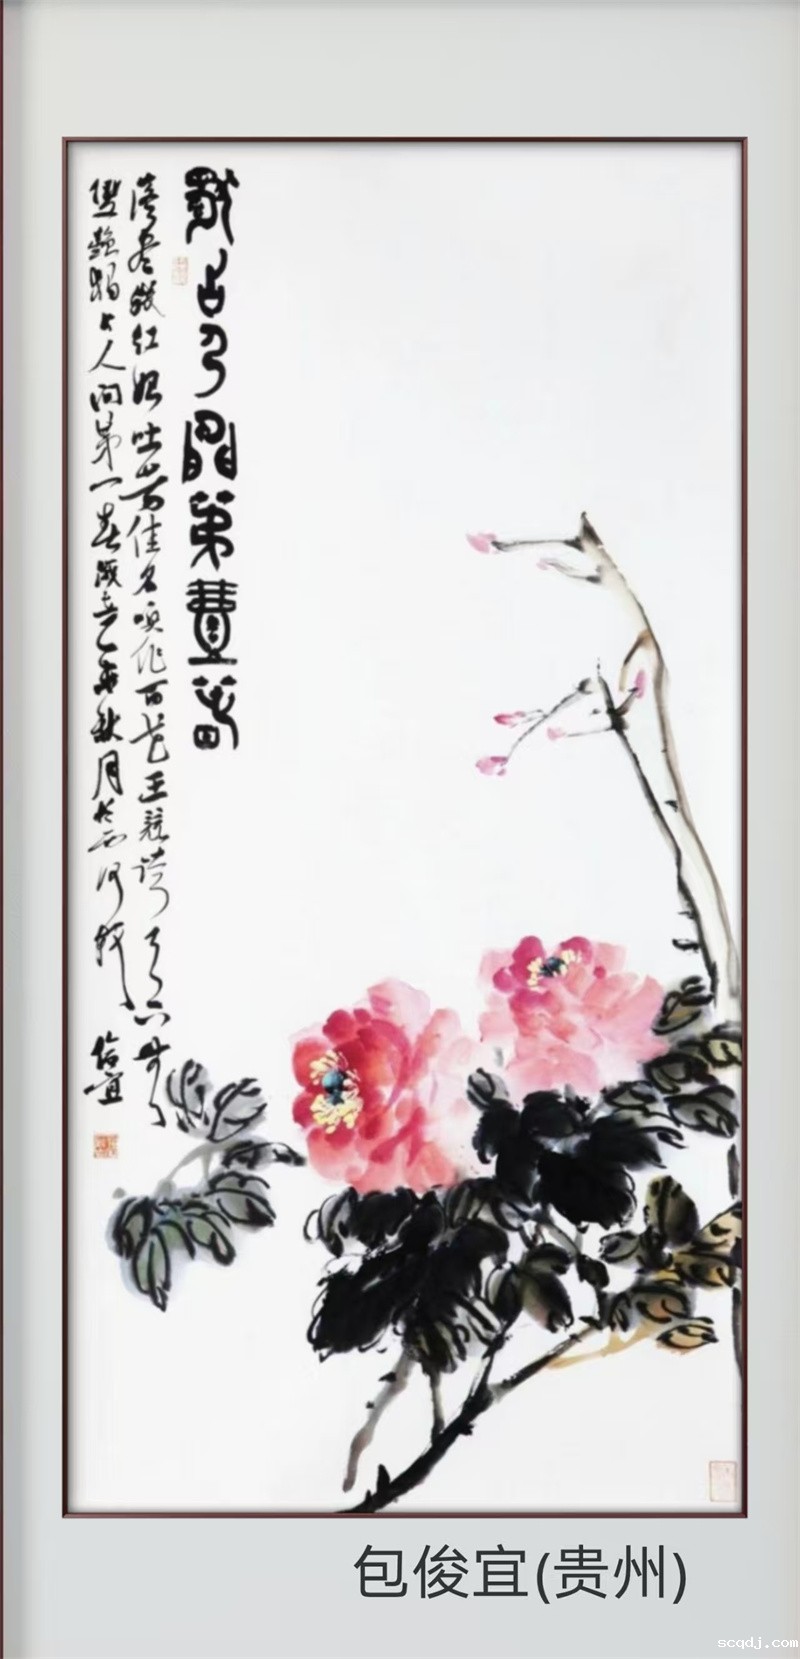 獨占人間第壹春
落盡殘紅始吐芳佳名喚作百花王競誇天下無
雙艷獨占人間第一春歲秋月於西河俊宜
包俊宜(贵州)
scqdj.com